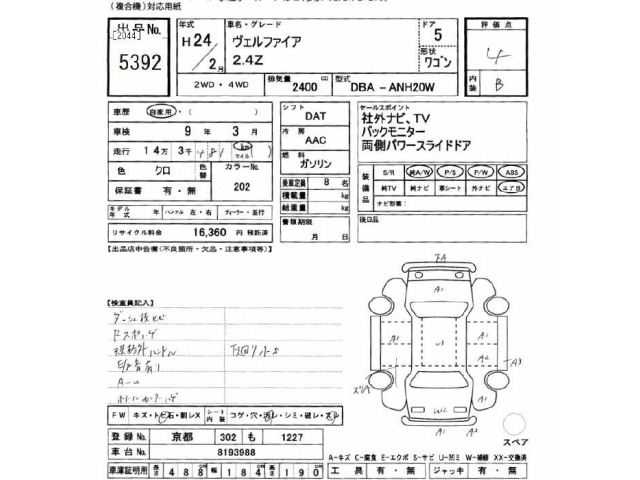 (複合機)対応用紙
出品No.
[2044]
5392
年式
H24/2月
車名・グレード
ヴェルファイア
2.4Z
ドア
5
形状
ワゴン
評価点
4
内装
B
2WD・4WD
排気量
2400 cc
型式
DBA-ANH20W
車歴 自家用・( )
車検 9年 3月
走行 14万3千481 km マイル
色 クロ
色替
カラーNo.
202
保証書 有・無
モデル年式 年 ハンドル 左・右 ディーラー・並行
リサイクル料金 16,360円 預託済
シフト
DAT
冷房
AAC
燃料
ガソリン
乗車定員 8名
積載量 kg
総重量 kg
書類期限
月 日
セールスポイント
社外ナビ、TV
バックモニター
両側パワースライドドア
装備品
S/R 純A/W P/S P/W ABS
純TV 純ナビ 革シート 外ナビ エアB
ナビ型番:
後日品
【出品店申告欄(不良箇所・欠品・注意事項等)】
【検査員記入】
規格外ハンドル
FW キズ・トビ石・割レX
シート内装 コゲ・穴・汚レ・シミ・破レ・スレ
登録No. 京都 302 も 1227
車台No. 8193988
車庫証明用 長さ 488cm 幅 184cm 高さ 190cm
A1
U1
A1
A2
A3
W2
A1
A2
スペア
A-キズ C-腐食 E-エクボ S-サビ U-凹ミ W-補修 XX-交換済
工具 有・無 ジャッキ 有・無